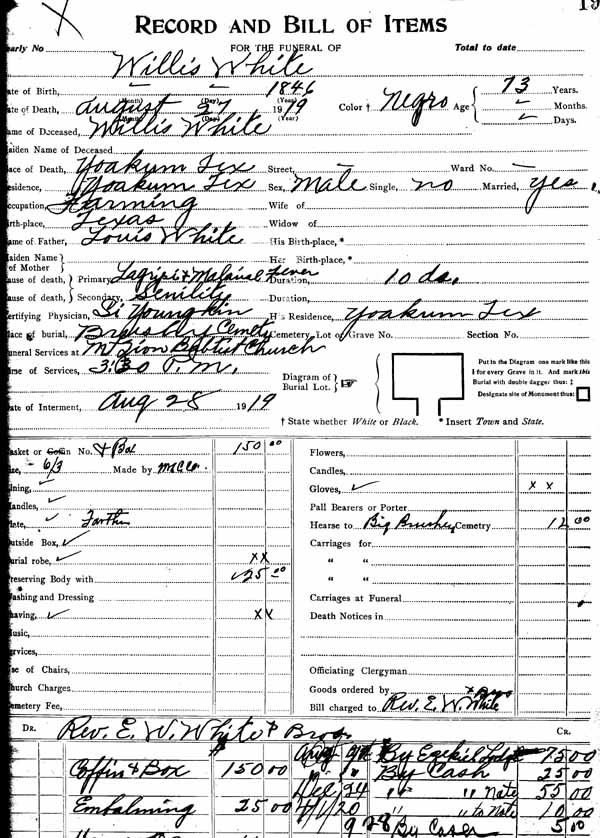 19
RECORD AND BILL OF ITEMS
early No FOR THE FUNERAL OF Total to date
Willis White
ate of Birth, – – 1846 73 Years.
(Month) (Day) (Year)
ate of Death, August 27 1919 Color † Negro Age ✓ Months.
(Month) (Day) (Year)
ame of Deceased, Willis White ✓ Days.
aiden Name of Deceased
ace of Death, Yoakum Tex Street, – Ward No. –
esidence, Yoakum Tex Sex, Male Single, no Married, yes
ccupation, Farming Wife of
irth-place, Texas Widow of
ame of Father, Louis White His Birth-place, *
aiden Name of Mother Her Birth-place, *
ause of death, Primary, Lagrippe & Malarial Fever Duration, 10 ds.
ause of death, Secondary, Senility Duration,
ertifying Physician, Youngkin His Residence, Yoakum Tex
lace of burial, Brushy Cemety Cemetery, Lot or Grave No. Section No.
uneral Services at Mt Zion Baptist Church
ime of Services, 3:30 P.M.
Diagram of Burial Lot. ☞
Put in the Diagram one mark like this
I for every Grave in it. And mark this
Burial with double dagger thus: ‡
Designate site of Monument thus: □
ate of Interment, Aug 28 1919
† State whether White or Black. * Insert Town and State.
asket or Coffin No. & Box 150 00
ize, – 6/3 Made by
ining, ✓
andles, ✓
late, ✓
utside Box, ✓
urial robe, ✓ x x
reserving Body with ✓ 25 00
ashing and Dressing
having, ✓ x x
usic,
ervices,
se of Chairs,
hurch Charges
emetery Fee,
Flowers,
Candles,
Gloves, ✓ x x
Pall Bearers or Porter
Hearse to Big Brushy Cemetry 12 00
Carriages for
" "
" "
Carriages at Funeral
Death Notices in
Officiating Clergyman
Goods ordered by & Bros
Bill charged to Rev. E. W. White
DR. Rev. E. W. White & Bros CR.
Coffin & Box 150 00
Embalming 25 00
By Ezekiel Lodge 75 00
By Cash 25 00
Dec 24 " " Note 55 00
4/1/20 " to Note 10 00
9 28 By Cash 5 00